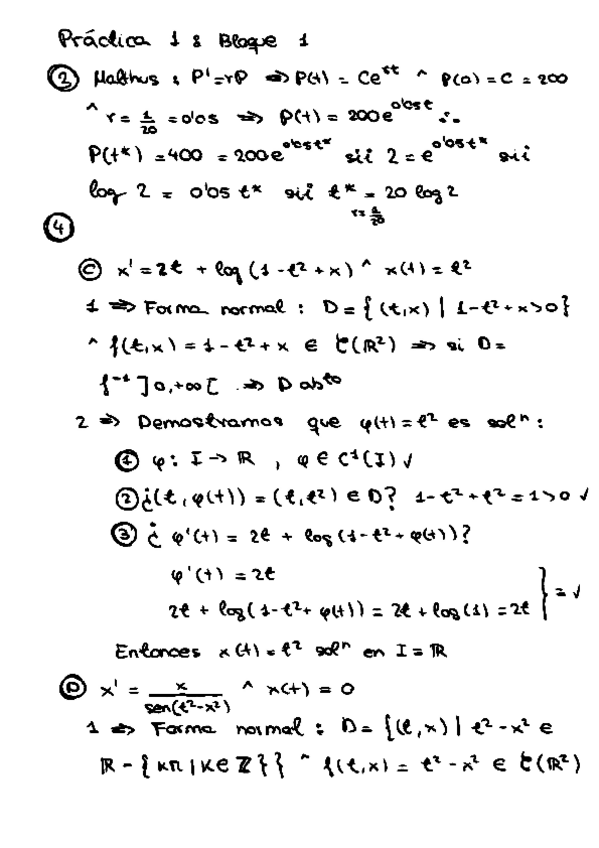 Práctica 1 : Bloque 1
② Malthus : P' = rP ⇒ P(t) = Ce^{rt} ^ P(0) = C = 200
^ r = 1/20 = 0'05 ⇒ P(t) = 200e^{0'05t} ∴
P(t*) = 400 = 200e^{0'05t*} sii 2 = e^{0'05t*} sii
log 2 = 0'05 t* sii t* = 20 log 2
r = 1/20
④
Ⓒ x' = 2t + log (1 - t² + x) ^ x(t) = t²
1 ⇒ Forma normal : D = {(t,x) | 1 - t² + x > 0}
^ f(t,x) = 1 - t² + x ∈ C(ℝ²) ⇒ si D =
f⁻¹ ]0,+∞[ ⇒ D abto
2 ⇒ Demostramos que φ(t) = t² es solⁿ :
① φ : I → ℝ , φ ∈ C¹(I) ✓
② ¿(t, φ(t)) = (t, t²) ∈ D? 1 - t² + t² = 1 > 0 ✓
③ ¿ φ'(t) = 2t + log (1 - t² + φ(t))?
φ'(t) = 2t
2t + log(1 - t² + φ(t)) = 2t + log(1) = 2t } = ✓
Entonces x(t) = t² solⁿ en I = ℝ
Ⓓ x' = x/sen(t² - x²) ^ x(t) = 0
1 ⇒ Forma normal : D = {(t,x) | t² - x² ∈
ℝ - {kπ | k ∈ ℤ}} ^ f(t,x) = t² - x² ∈ C(ℝ²)